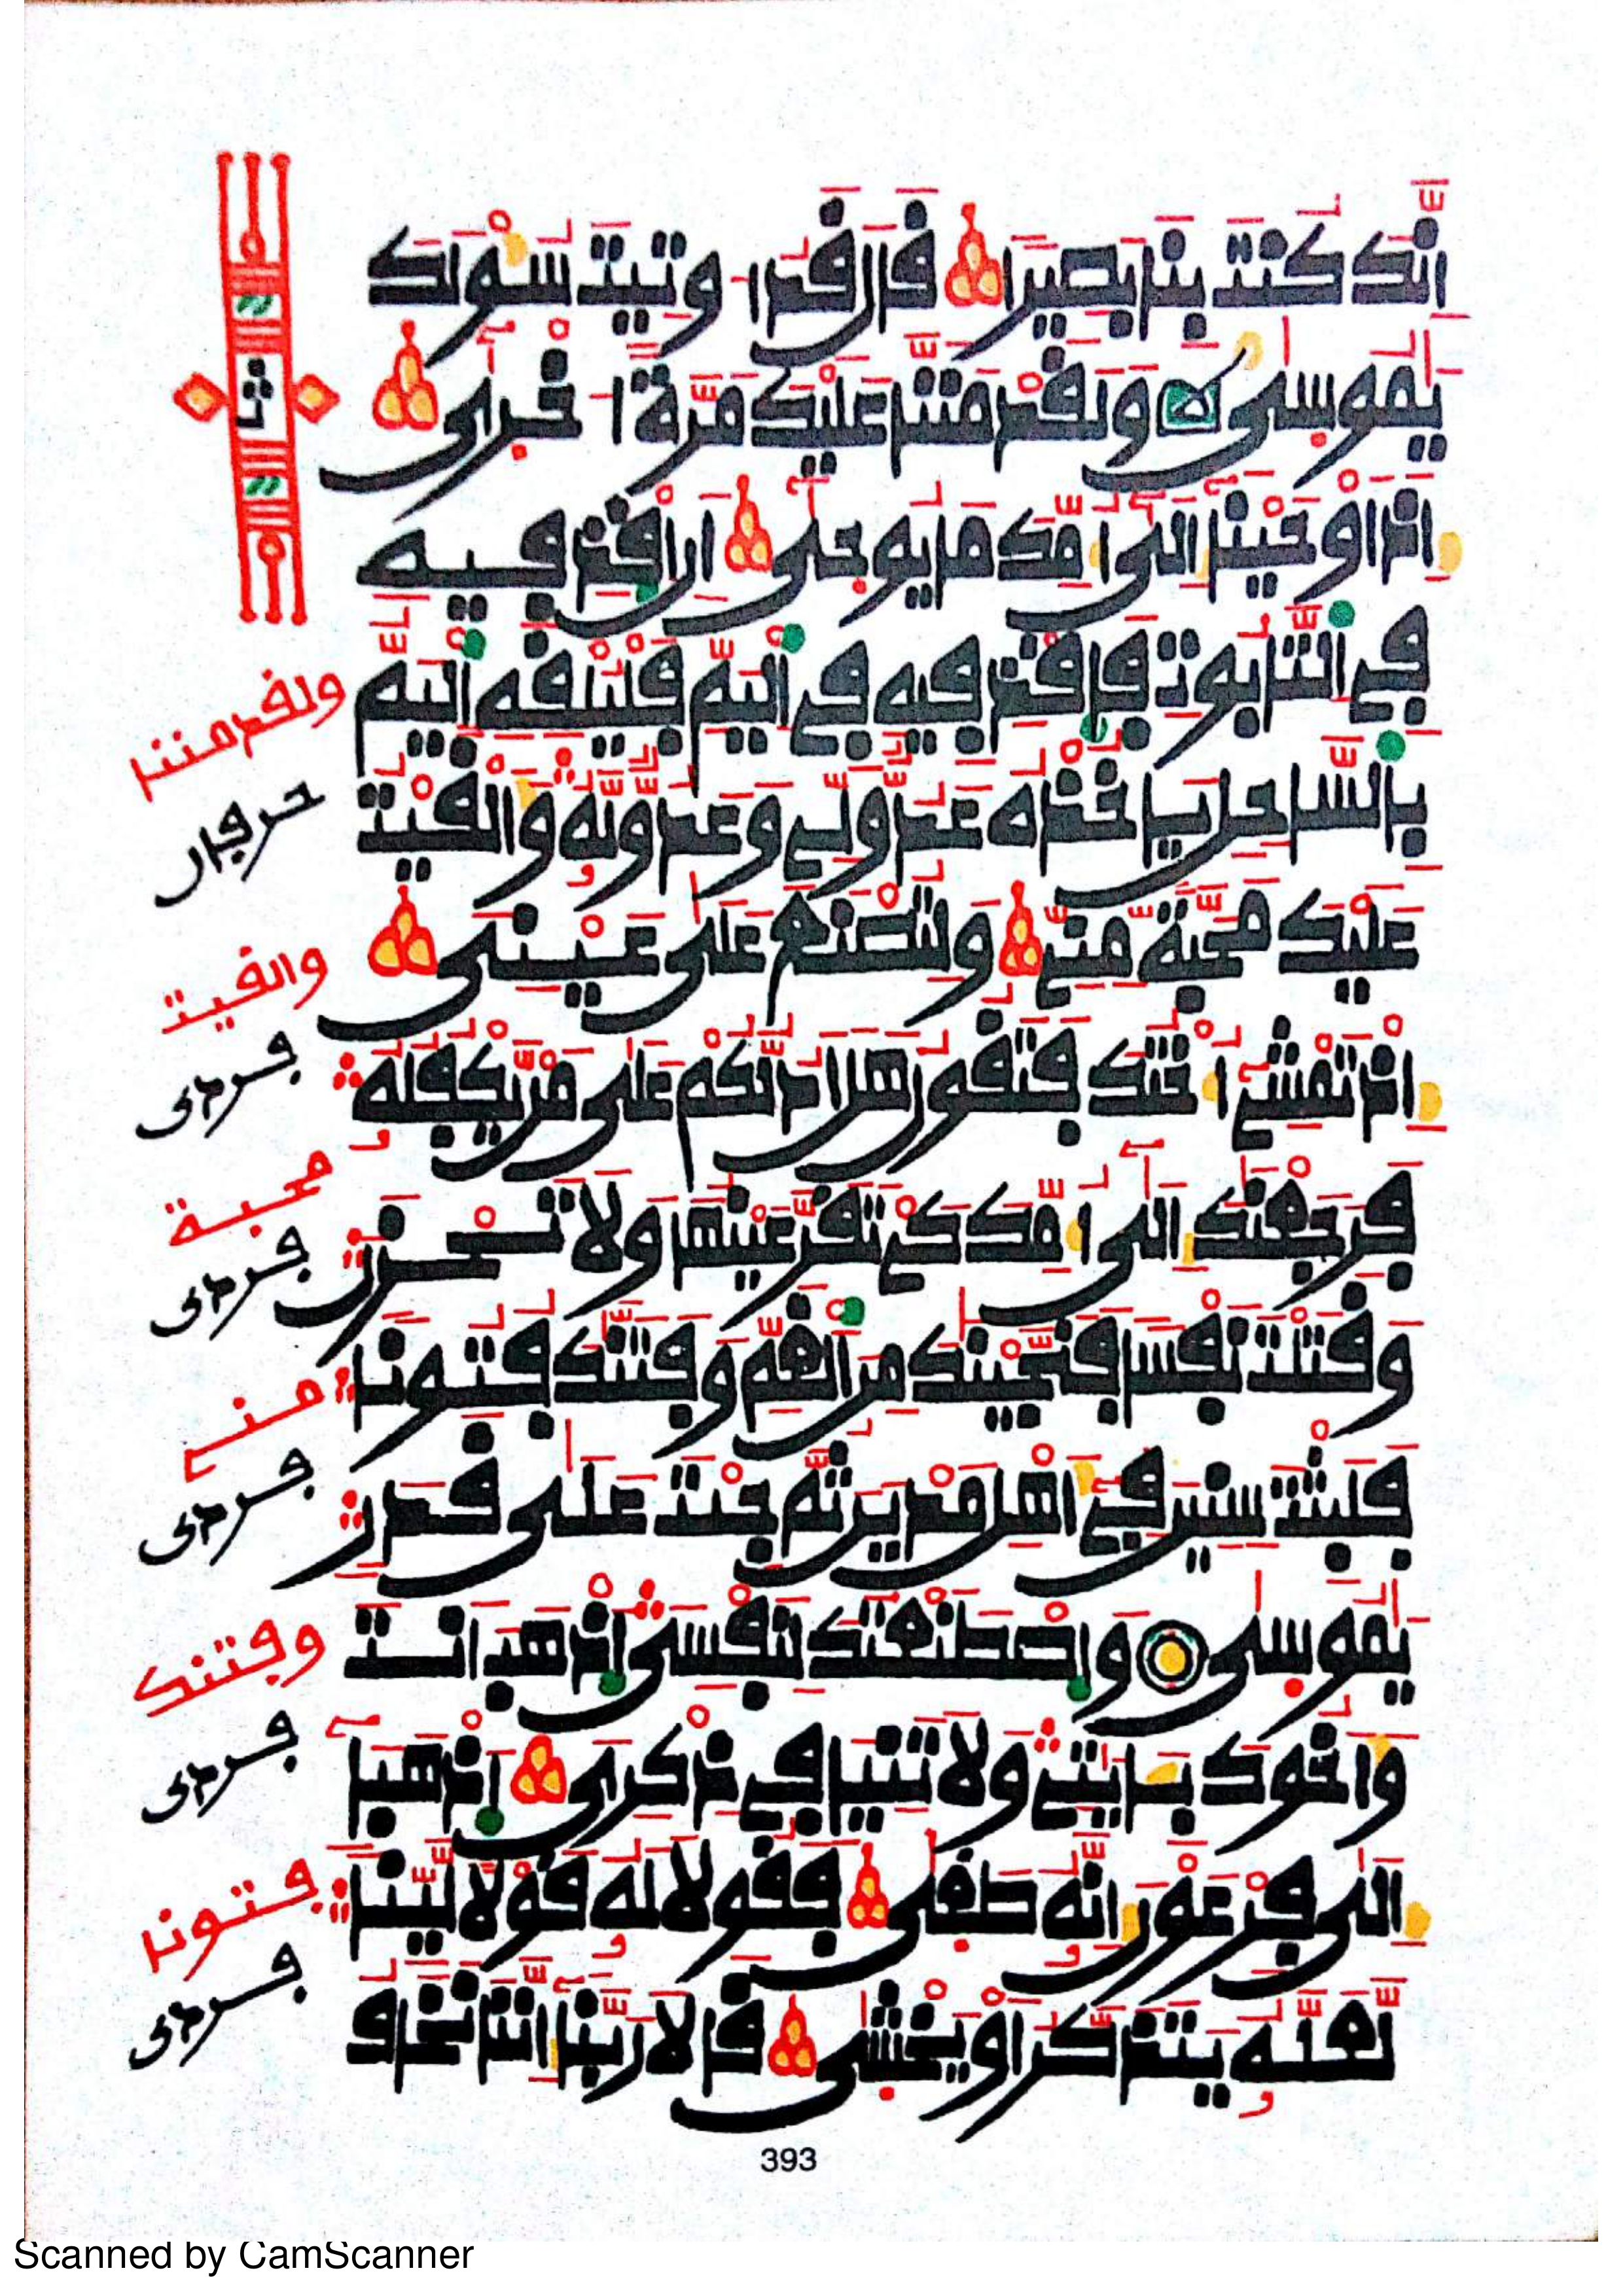 إِنَّكَ كُنتَ بِنَا بَصِيرًا قَالَ قَدُ اوتِيتَ سُؤْلَكَ
يَٰمُوسَىٰ وَلَقَدْ مَنَنَّا عَلَيْكَ مَرَّةً اخْرَىٰ
إِذَ اوْحَيْنَا إِلَىٰ أُمِّكَ مَا يُوحَىٰ أَنِ اقْذِفِيهِ
فِے اِلتَّابُوتِ فَاقْذِفِيهِ فِے اِلْيَمِّ فَلْيُلْقِهِ اِلْيَمُّ
بِالسَّاحِلِ يَاخُذْهُ عَدُوٌّ لِّے وَعَدُوٌّ لَّهُۥ وَأَلْقَيْتُ
عَلَيْكَ مَحَبَّةً مِّنِّے وَلِتُصْنَعَ عَلَىٰ عَيْنِى
إِذْ تَمْشِے أُخْتُكَ فَتَقُولُ هَلَ ادُلُّكُمْ عَلَىٰ مَنْ يَّكْفُلُهُۥ
فَرَجَعْنَٰكَ إِلَىٰ أُمِّكَ كَےْ تَقَرَّ عَيْنُهَا وَلَا تَحْزَنَ
وَقَتَلْتَ نَفْسًا فَنَجَّيْنَٰكَ مِنَ اَلْغَمِّ وَفَتَنَّٰكَ فُتُونًا
فَلَبِثْتَ سِنِينَ فِے أَهْلِ مَدْيَنَ ثُمَّ جِئْتَ عَلَىٰ قَدَرٍ
يَٰمُوسَىٰ وَاصْطَنَعْتُكَ لِنَفْسِى اَذْهَبَ انتَ
وَأَخُوكَ بِـَٔايَٰتِے وَلَا تَنِيَا فِے ذِكْرِى اَذْهَبَا
إِلَىٰ فِرْعَوْنَ إِنَّهُۥ طَغَىٰ فَقُولَا لَهُۥ قَوْلًا لَّيِّنًا
لَّعَلَّهُۥ يَتَذَكَّرُ أَوْ يَخْشَىٰ قَالَا رَبَّنَا إِنَّنَا نَخَافُ
ثمن
ولقد مننا
حرفان
والقيت
فردى
محبة
فردى
منے
فردى
وفتنك
فردى
فتونا
فردى
393
Scanned by CamScanner